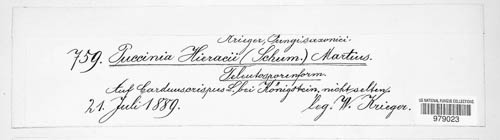 Krieger, Fungi saxonici.
759. Puccinia Hieracii (Schum.) Martius.
Teleutosporenform.
Auf Carduus crispus L. bei Königstein, nicht selten.
21. Juli 1889. leg. W. Krieger.
US NATIONAL FUNGUS COLLECTIONS
979023